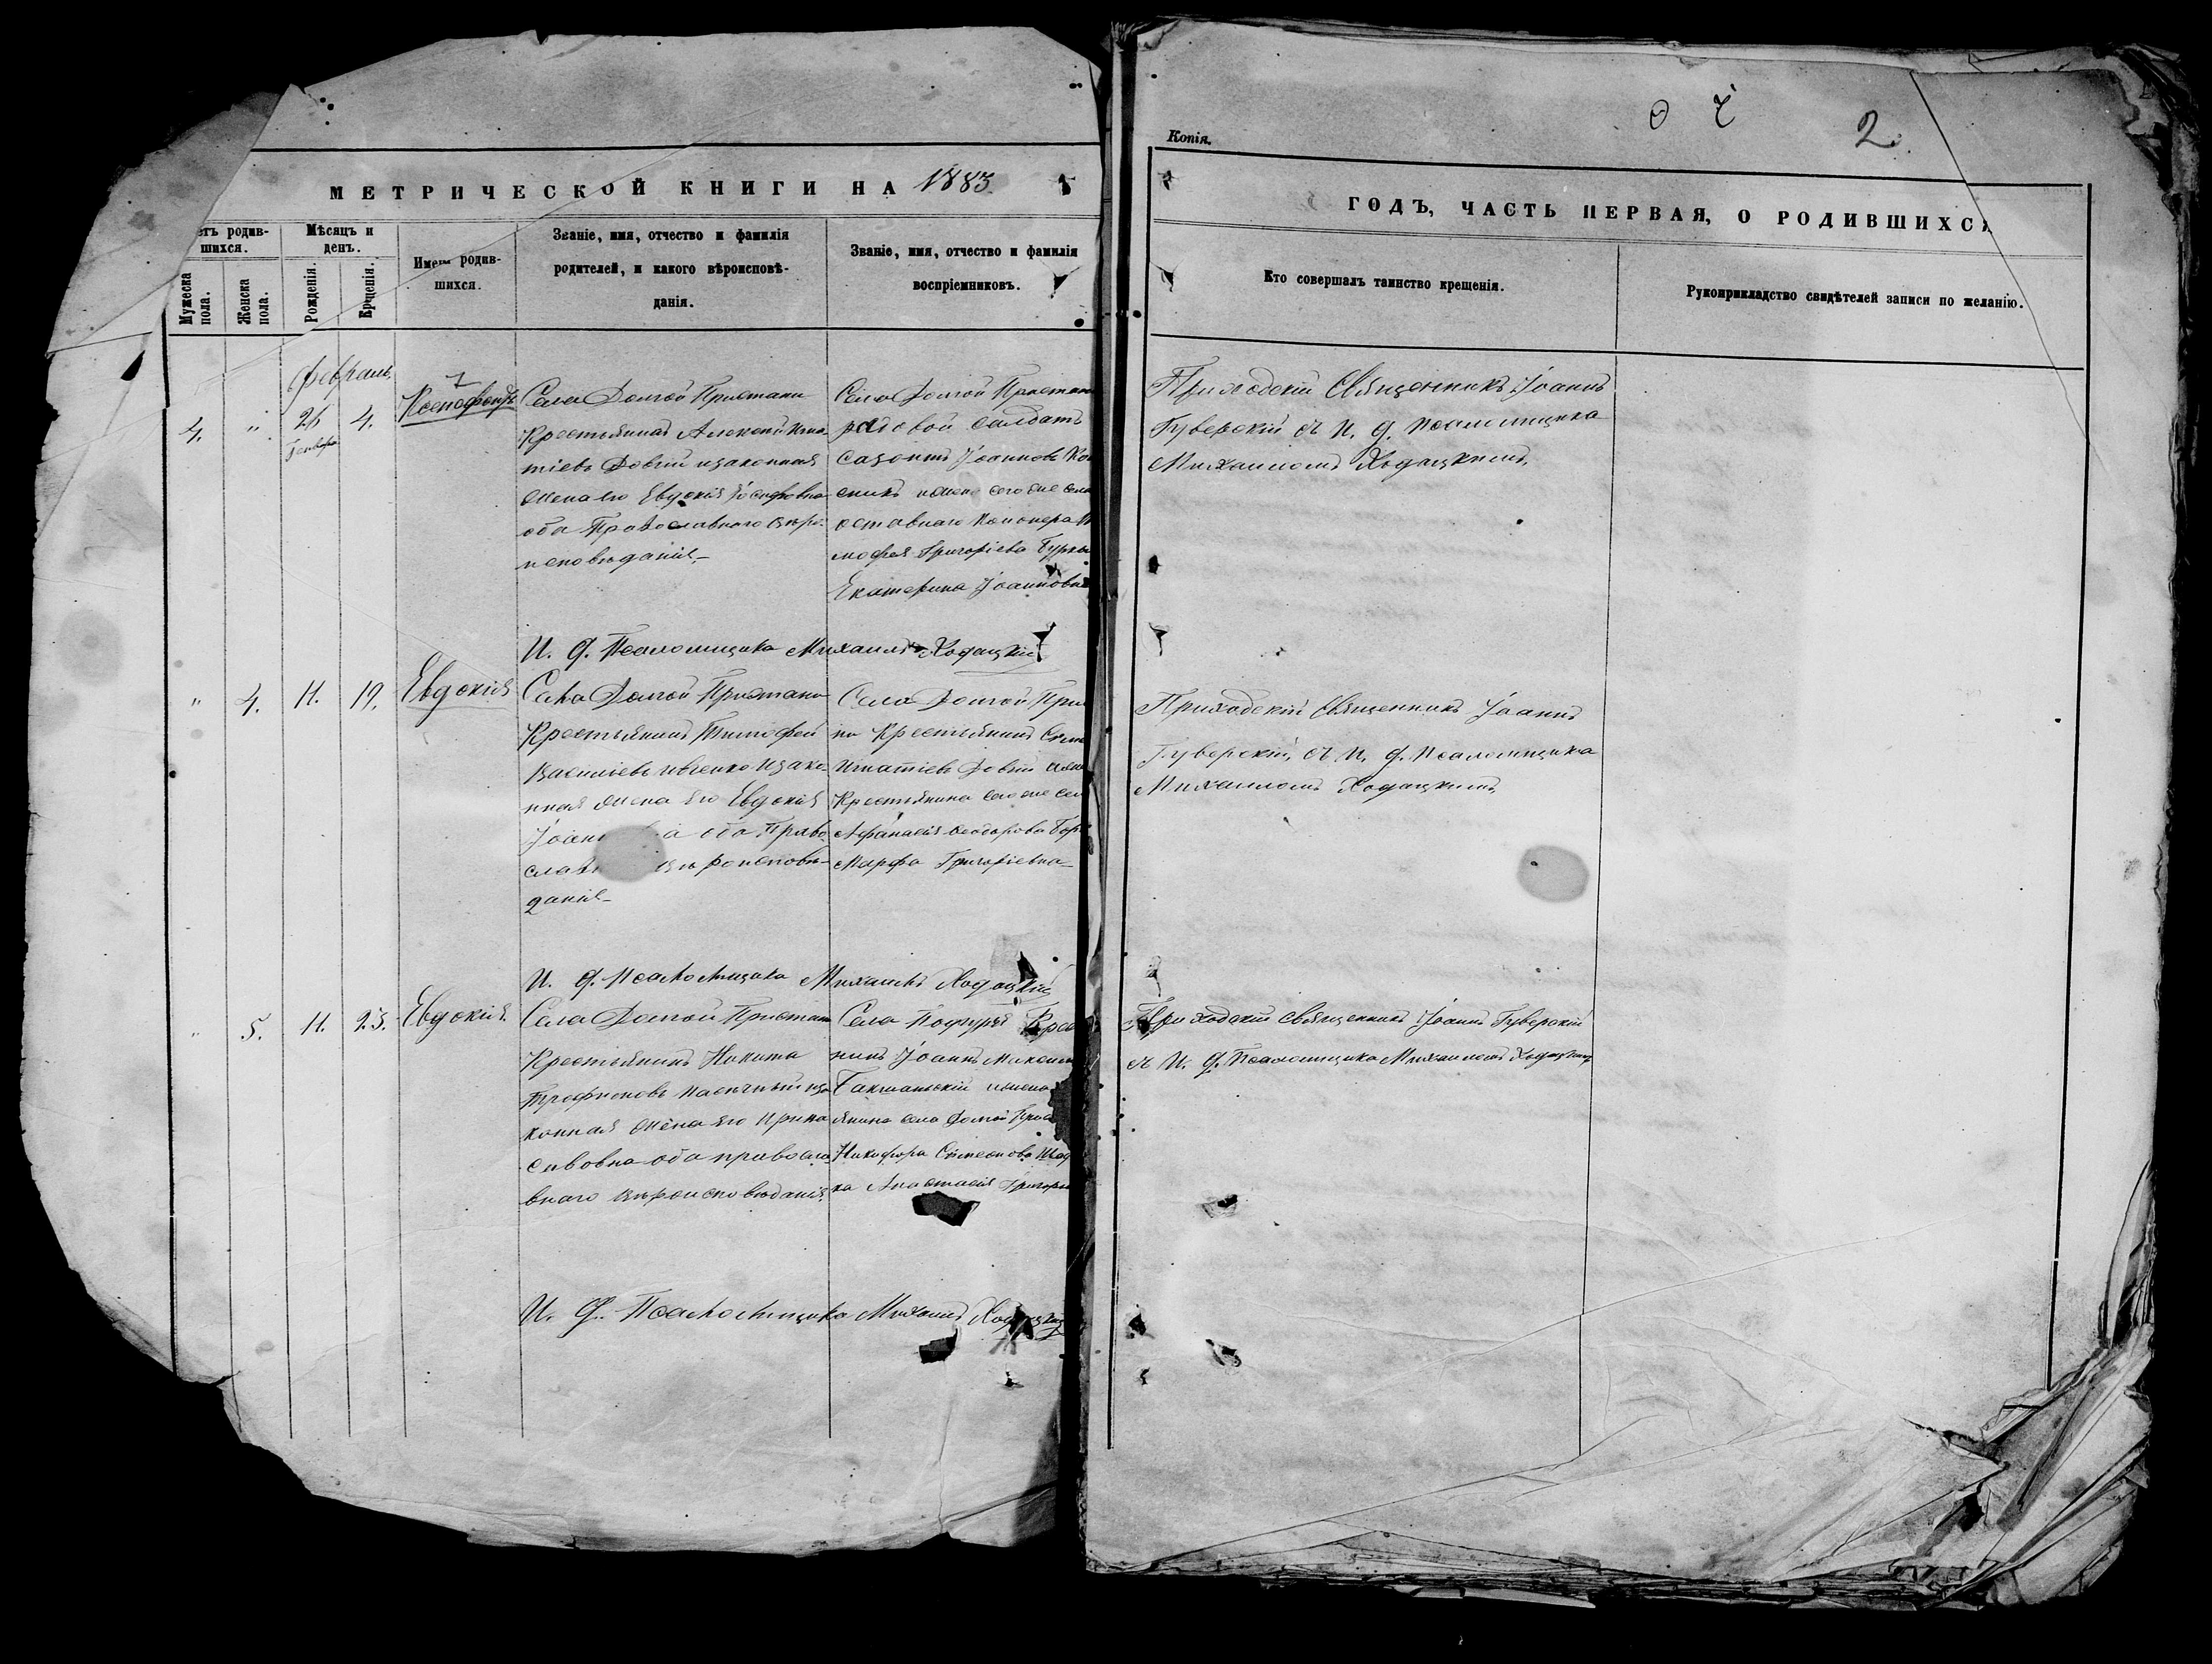 МЕТРИЧЕСКОЙ КНИГИ НА 1883
етъ родив-
шихся.
Мужеска
пола.
Женска
пола.
Мѣсяцъ и
день.
Рожденія.
Крщенія.
Имена родив-
шихся.
Званіе, имя, отчество и фамилія
родителей, и какого вѣроисповѣ-
данія.
Званіе, имя, отчество и фамилія
воспріемниковъ.
Февраль
4. " 26 Генваря 4. Ксенофонтъ
Села Долгой Пристани
Крестьянинъ Алексей Игна-
тіевъ Довгій изаконная
жена его Евдокія Іосифовна
оба Православнаго вѣро-
исповѣданія
Села Долгой Пристан
рядовой солдатъ
Созонтъ Іоанновъ
и жена того же села
отставнаго Канонера
мофея Григоріева
Екатерина Іоанновна
И. д. Псаломщика Михаилъ Ходацкій
" 4. 11. 19. Евдокія
Села Долгой Пристани
Крестьянинъ Тимофей
Василіевъ Ивченко изако-
нная жена его Евдокія
оба Право
вѣроисповѣ-
данія
Села Долгой При
ни Крестьянинъ
Игнатіевъ Довгій и жена
Крестьянина того же сел
Афанасія Феодорова
Марфа Григоріевна
И. д. Псаломщика Михаилъ Ходацкій
" 5. 11. 23. Евдокія
Села Долгой Пристани
Крестьянинъ Никита
Трофимовъ иза
конная жена его Ирина
Савовна оба правосла
внаго вѣроисповѣданія
Села
нинъ Іоаннъ Максим
и жена
янина села Долгой Прис
Никифора Симеонова
ка Анастасія Григорі
И. д. Псаломщика Михаилъ Ходацкій
Копія.
2.
ГОДЪ, ЧАСТЬ ПЕРВАЯ, О РОДИВШИХСЯ
Кто совершалъ таинство крещенія.
Рукоприкладство свидѣтелей записи по желанію.
Приходскій Священникъ Іоаннъ
Гуверскій съ И. д. Псаломщика
Михаиломъ Ходацкимъ
Приходскій Священникъ Іоаннъ
Гуверскій, съ И. д. Псаломщика
Михаиломъ Ходацкимъ
Приходскій Священникъ Іоаннъ Гуверскій
съ И. д. Псаломщика Михаиломъ Ходацкимъ